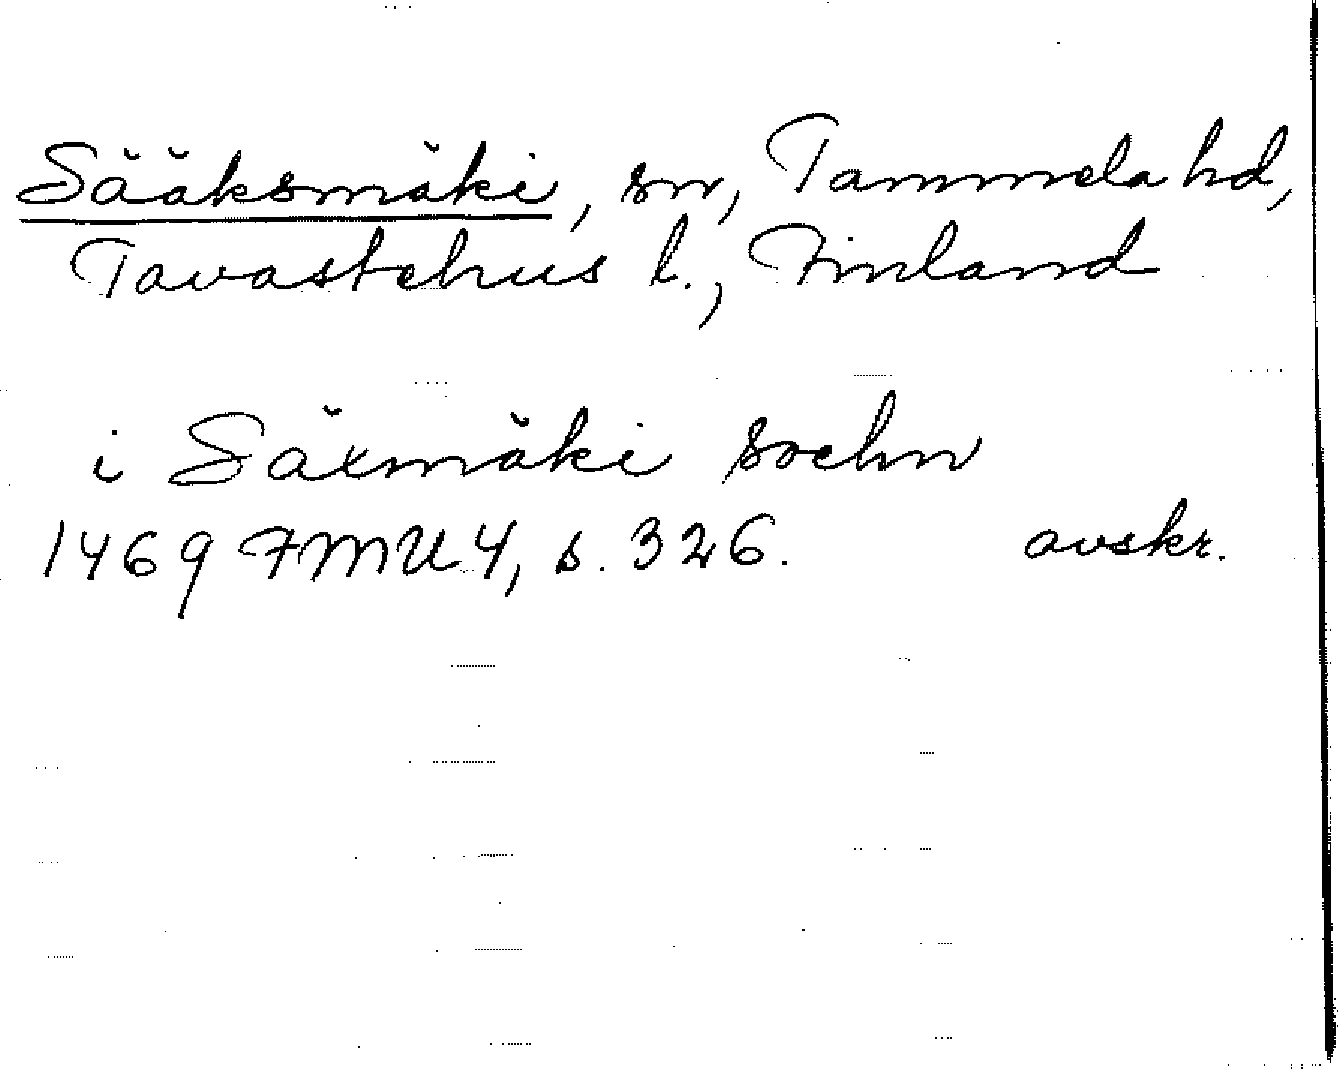 Sääksmäki, sn, Tammela hd,
Tavastehus l., Finland
i Säxmäki sochn
1469 FMU 4, s. 326. avskr.